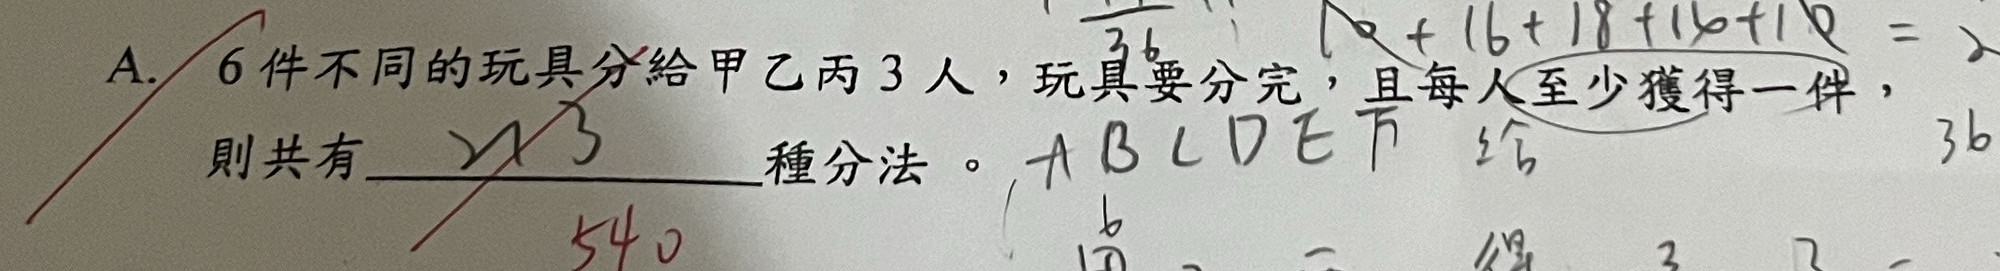 36
16+18+16+10 =
A. 6件不同的玩具分給甲乙丙3人，玩具要分完，且每人至少獲得一件，
則共有 3 種分法。 A B C D E F 給 36
540
6
得 3